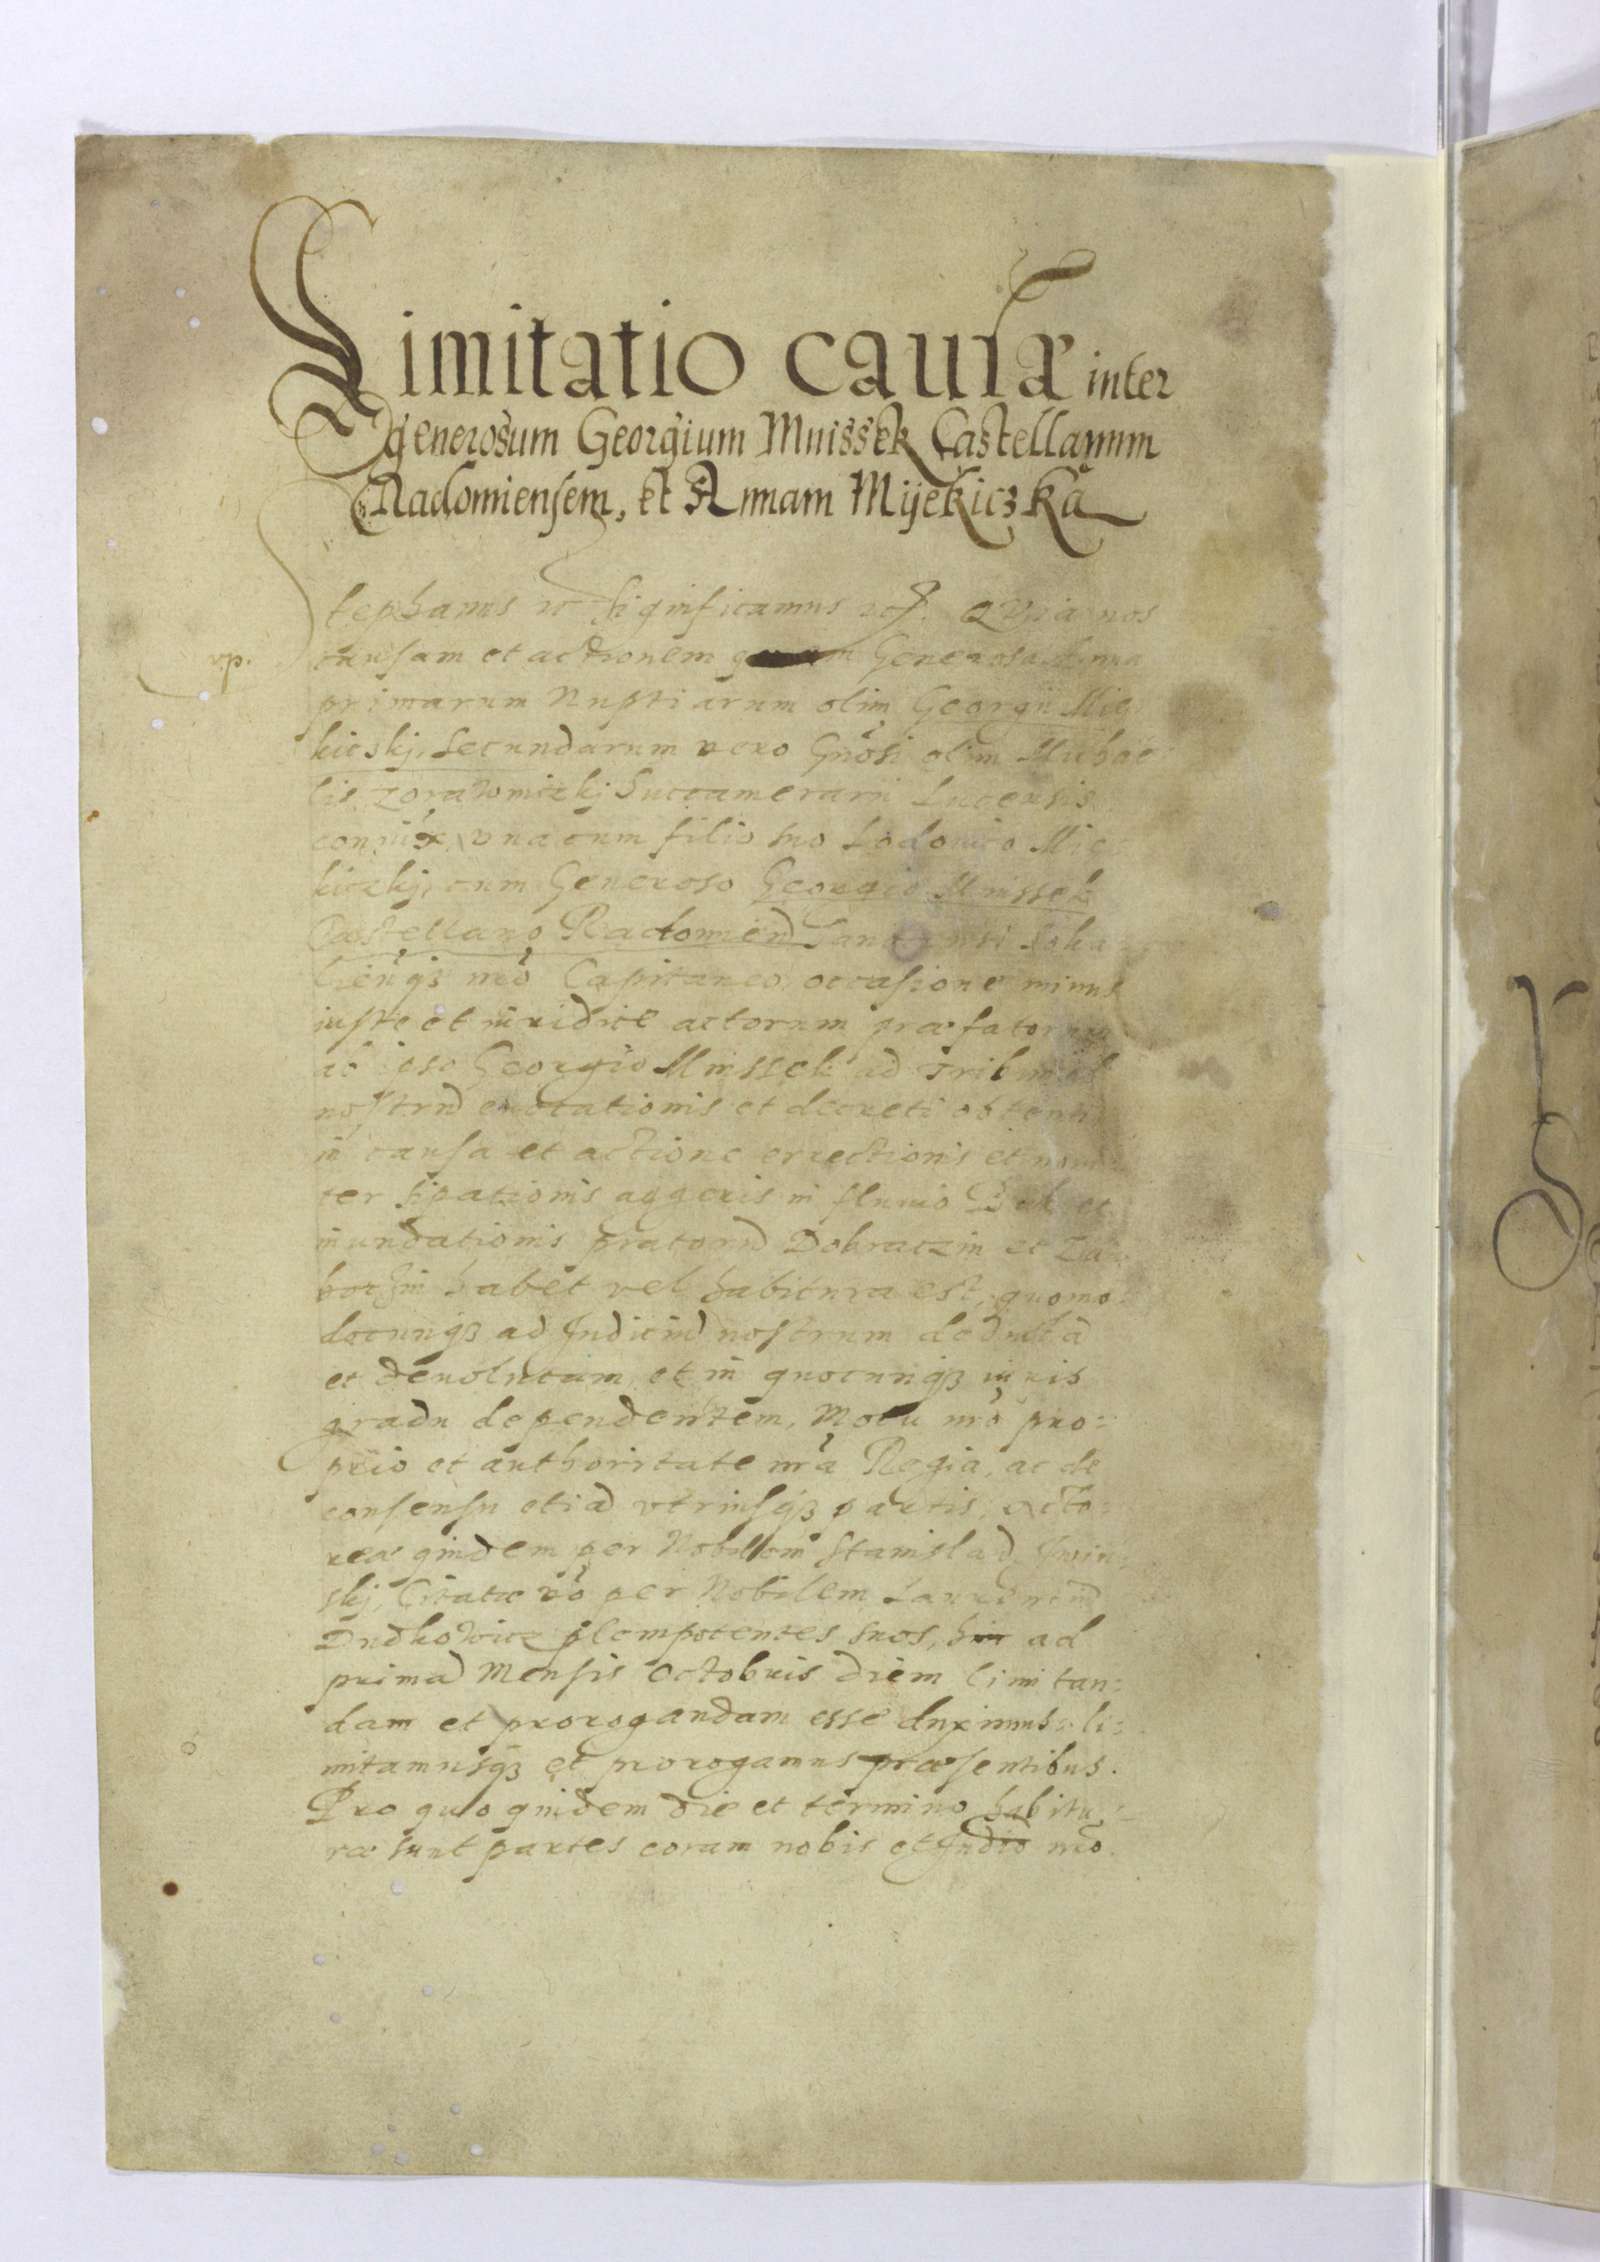 Limitatio causæ inter
generosum Georgium Mnissek Castellanum
Radomiensem, et Annam Mijekiczką
Stephanus etc Significamus etc. Quia nos
vp.
causam et actionem quam Generosa Anna
primarum Nuptiarum olim Georgii Mie
kicskj, Secundarum vero Gnosi olim Michae
lis Zorawniczkj Succamerarii Lucensis
coniux, vna cum filio suo Lodouico Mie
kiczkj, cum Generoso Georgio Mnissek
Castellano Radomien Soka
lienqz nro Capitaneo, occasione minus
iuste et iuridice actorum præfatorum
ab ipso Georgio Mnissek ad Tribunal
nostrū euocationis et decreti obtenti
in causa et actione errectionis et noui
ter sipationis aggeris in fluuio Buk et
inundationis pratorū Dobraczin et Za
boczin habet vel habitura est, quomo:
docunqz ad Judiciū nostrum deductā
et deuolutam, et in quocunqz iuris
gradu dependentem, Motu nro pro:
prio et authoritate nra Regia, ac de
consensu etiā vtriusqz partis, Acto:
reæ quidem per Nobilem Stanislaū
skj, Citatæ vo per Nobilem Laurentiū
Dudkowicz plempotentes suos, hin ad
primā Mensis Octobris diem limitan:
dam et prorogandam esse duximus: li:
mitamusqz et prorogamus præsentibus.
Pro quo quidem die et termino habitu:
ræ sunt partes coram nobis et Judio nro.